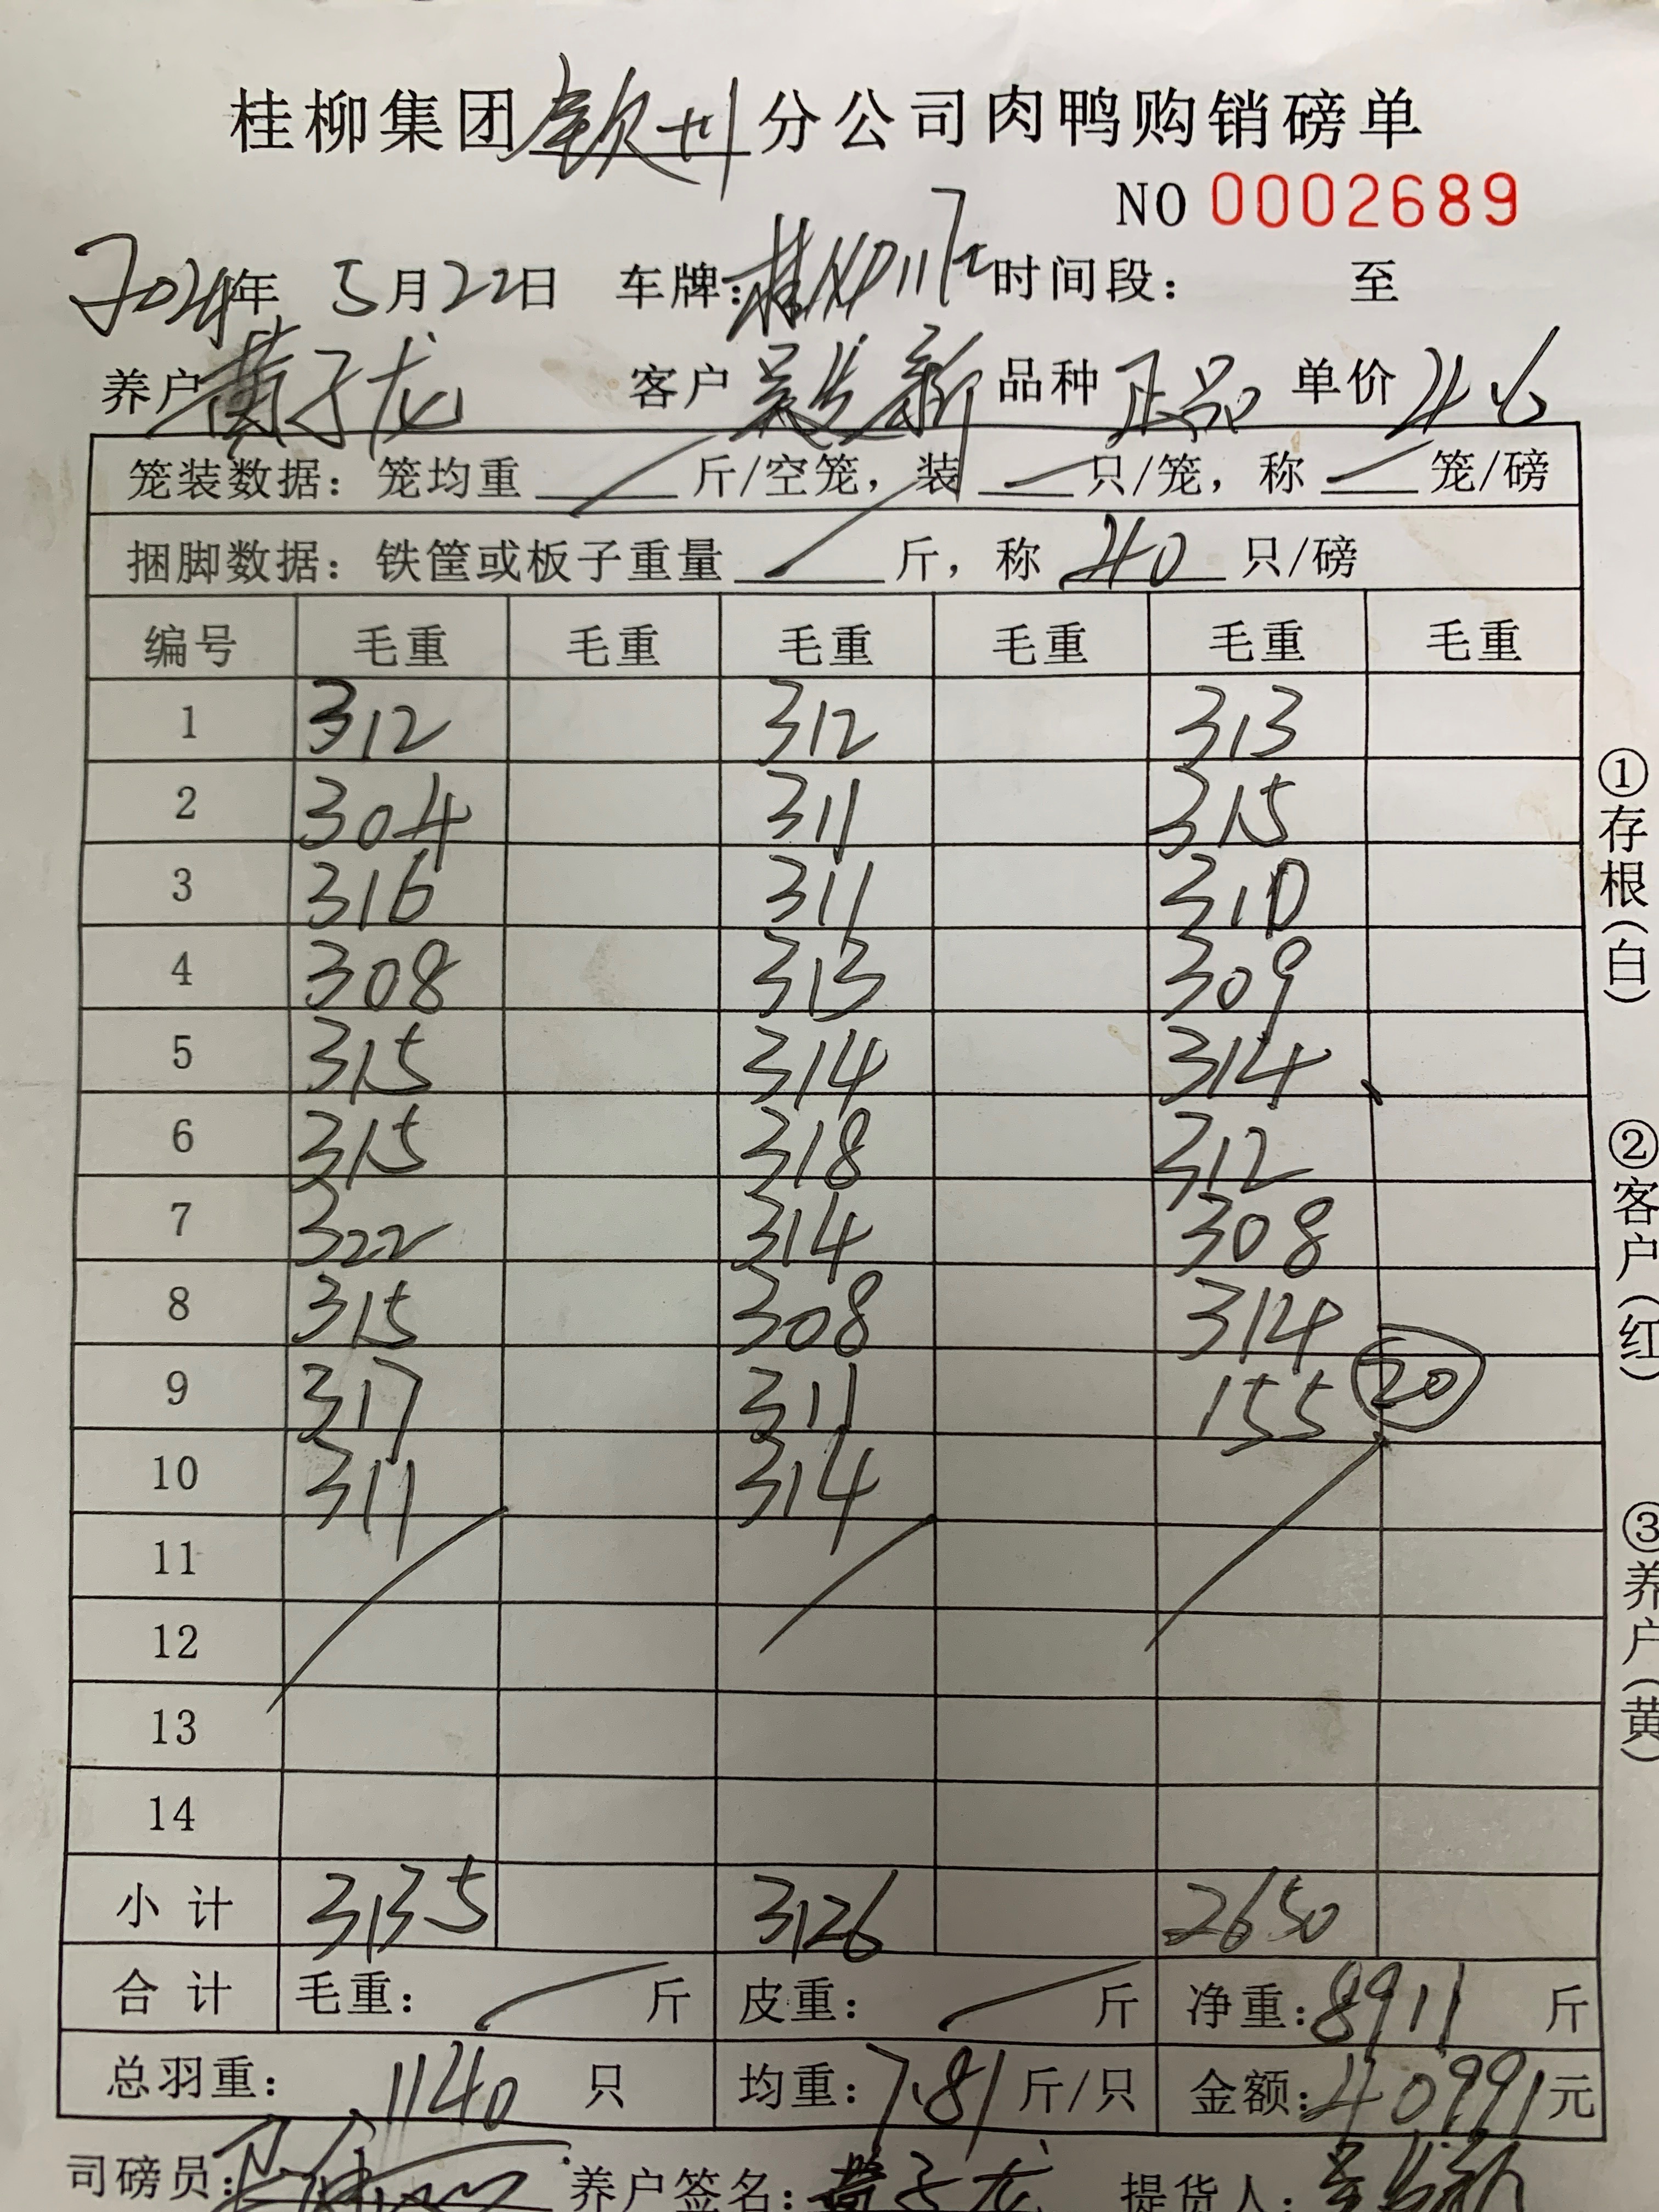 桂柳集团钦州分公司肉鸭购销磅单
NO 0002689
2024年 5月22日 车牌: 时间段: 至
养户黄子龙 客户 品种 正品 单价 4.6
笼装数据: 笼均重 斤/空笼, 装 只/笼, 称 笼/磅
捆脚数据: 铁筐或板子重量 斤, 称 40 只/磅
编号 毛重 毛重 毛重 毛重 毛重 毛重
1 312 312 313
2 304 311 315
3 316 311 310
4 308 313 309
5 315 314 314
6 315 318 312
7 322 314 308
8 315 308 314
9 317 311 155 20
10 311 314
11
12
13
14
小计 3135 3126 2650
合计 毛重: 斤 皮重: 斤 净重: 8911 斤
总羽重: 1140 只 均重: 7.81 斤/只 金额: 40991 元
司磅员: 养户签名: 黄子龙 提货人:
①存根(白)
②客户(红)
③养户(黄)